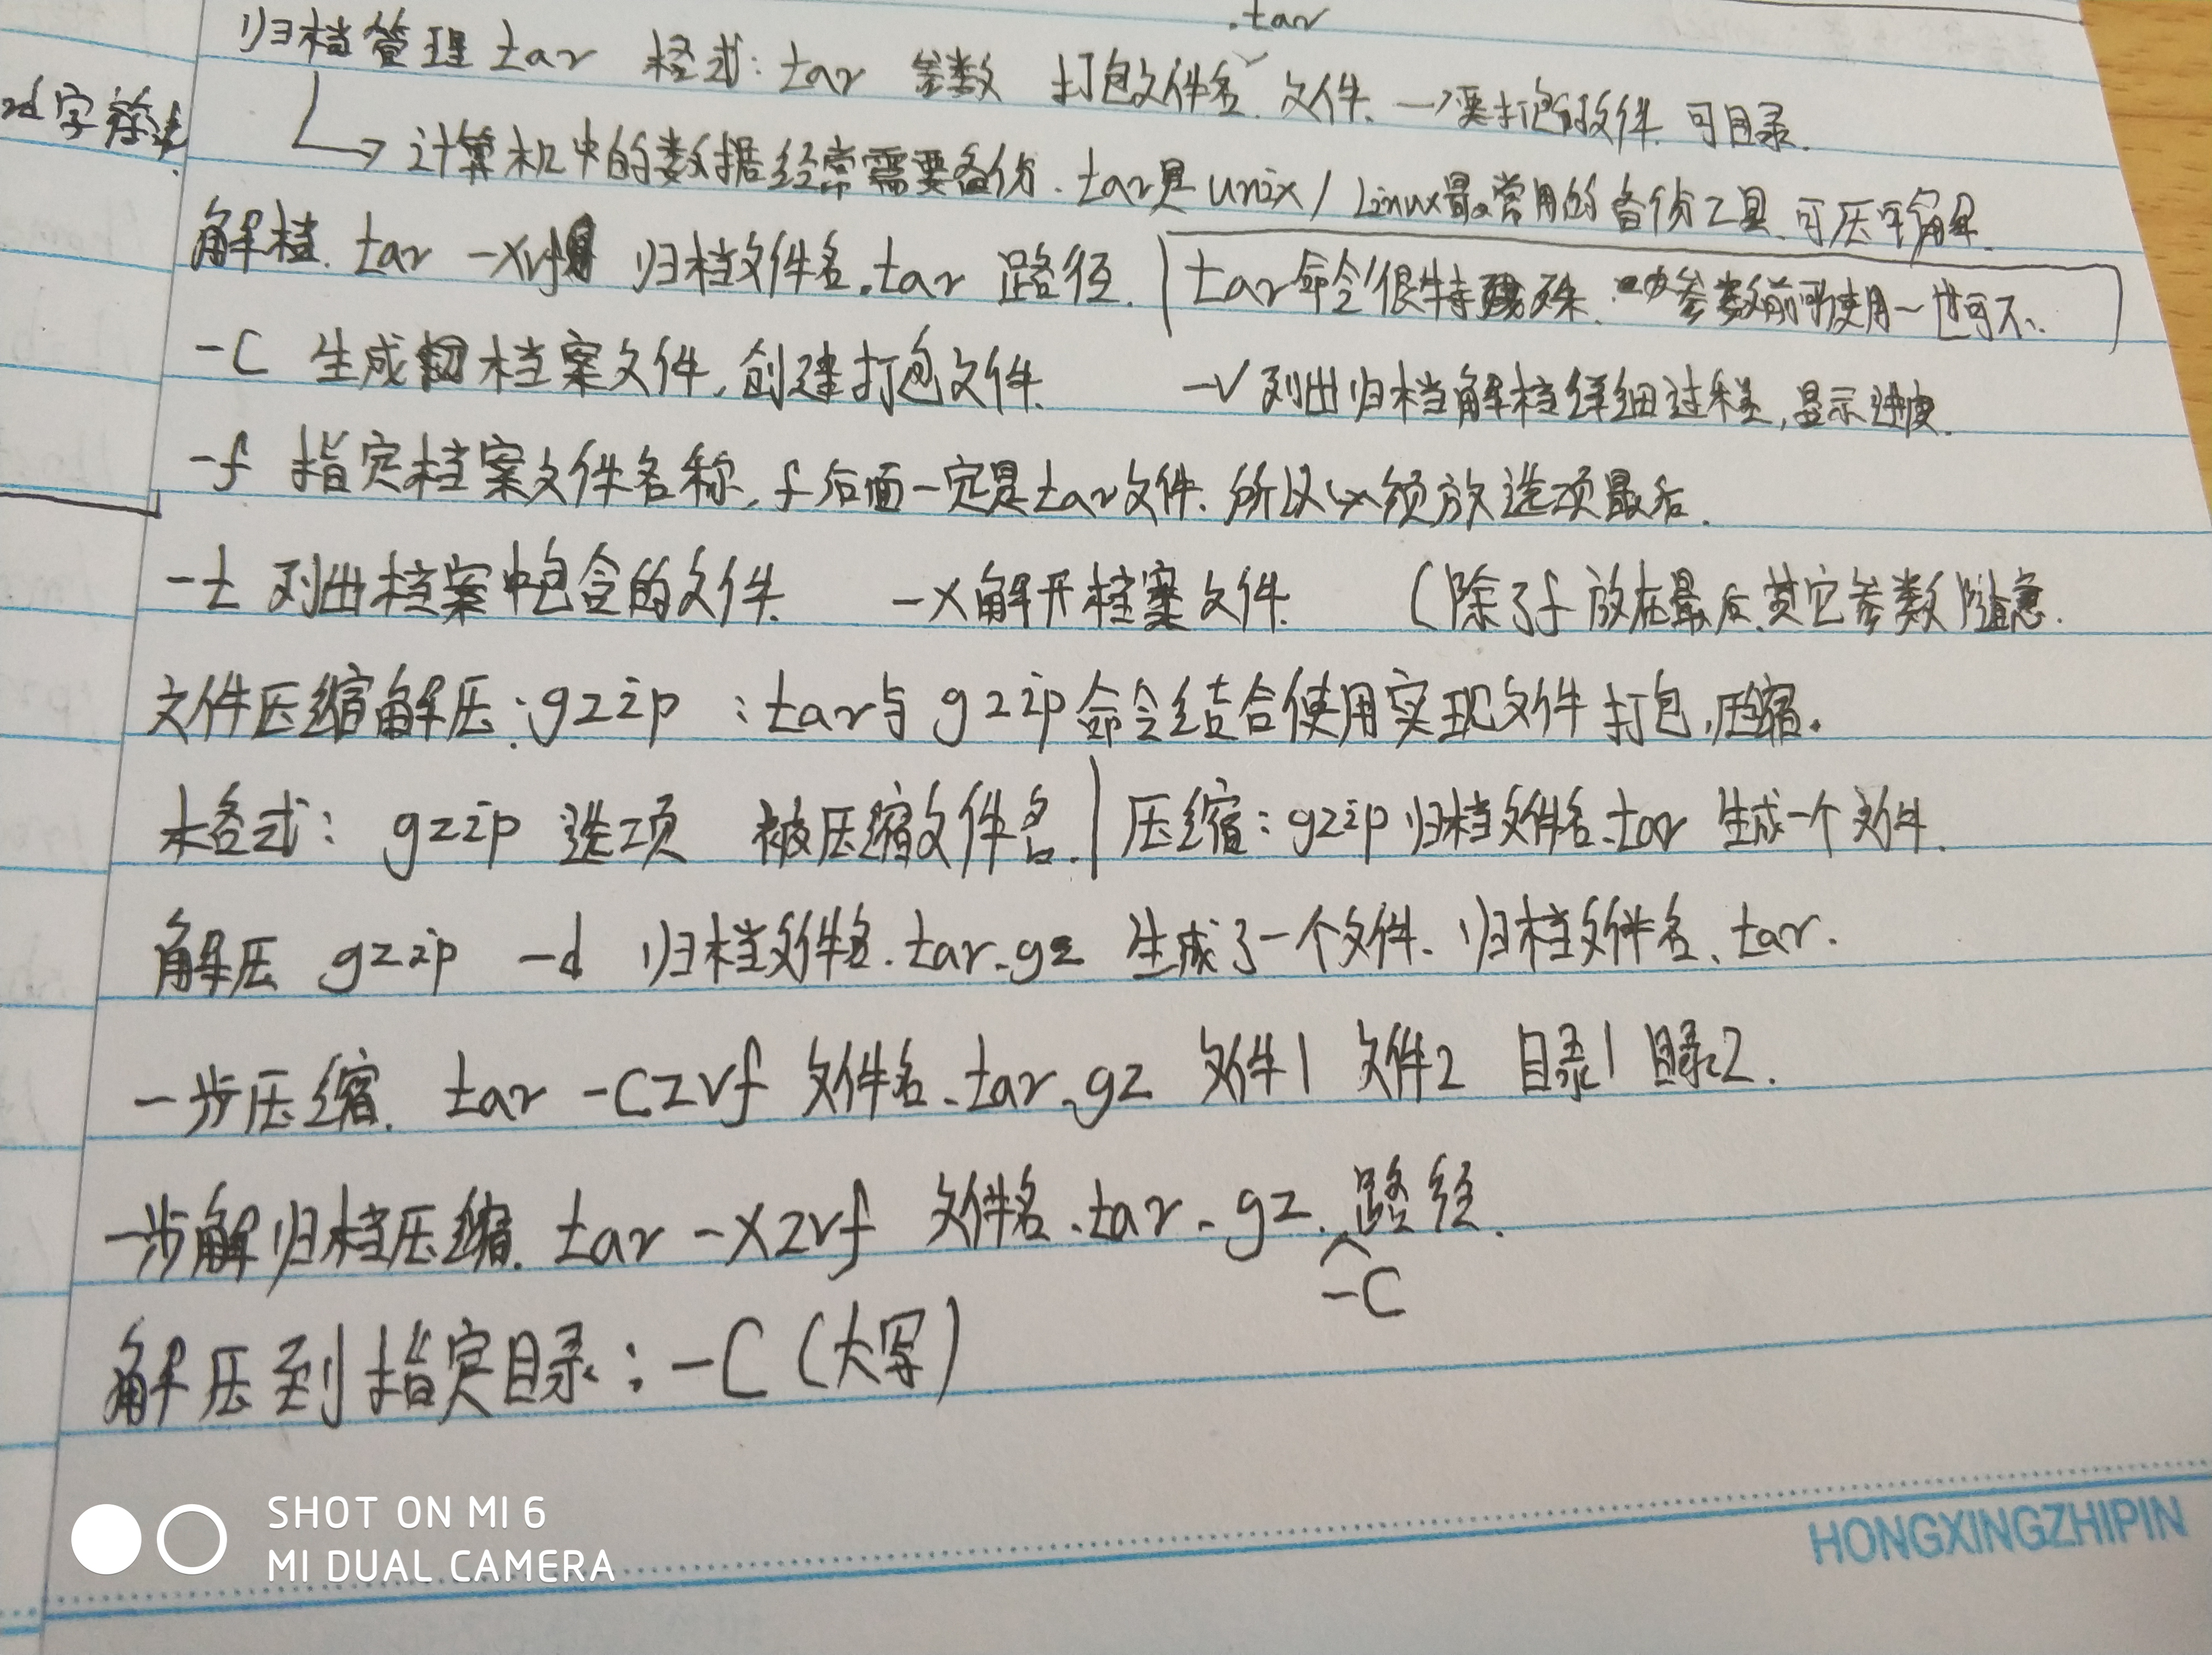 .tar
归档管理 tar 格式: tar 参数 打包文件名 文件. →要打包的文件 可目录.
字符
计算机中的数据经常需要备份. tar是 unix / Linux最常用的备份工具. 可压可解.
解档. tar -xvf 归档文件名.tar 路径. tar命令很特殊. 参数前可使用-也可不.
-C 生成档案文件, 创建打包文件. -v 列出归档解档详细过程, 显示进度.
-f 指定档案文件名称, f后面一定是tar文件. 所以必须放选项最后.
-t 列出档案中包含的文件. -x 解开档案文件. (除了f放在最后, 其它参数随意.
文件压缩解压: gzip : tar与gzip命令结合使用实现文件打包, 压缩.
格式: gzip 选项 被压缩文件名. | 压缩: gzip 归档文件名.tar 生成一个文件.
解压 gzip -d 归档文件名.tar.gz 生成了一个文件. 归档文件名.tar.
一步压缩. tar -czvf 文件名.tar.gz 文件1 文件2 目录1 目录2.
一步解归档压缩. tar -xzvf 文件名.tar.gz. 路径.
-C
解压到指定目录: -C (大写)
SHOT ON MI 6
MI DUAL CAMERA
HONGXINGZHIPIN